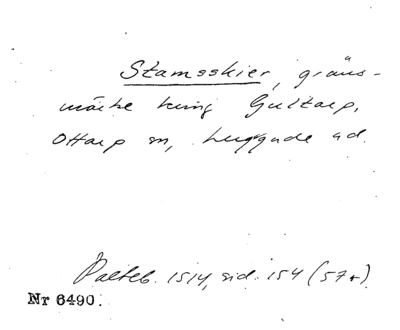 Stamsskier, gräns-
märke kring Gultarp,
Ottarp sn, Luggude hd.
Palteb. 1514, sid. 154 (57r)
Nr 6490.